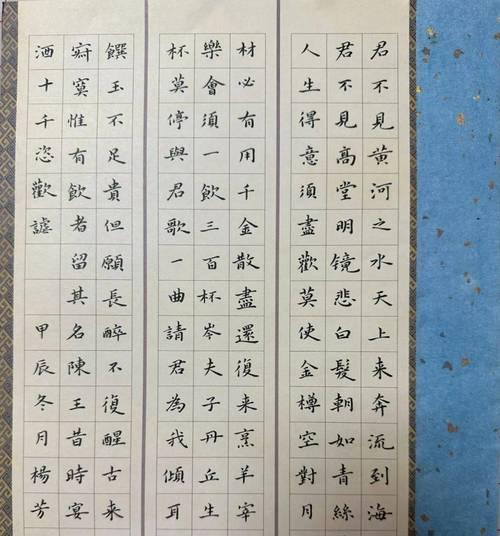 君不見黃河之水天上来奔流到海
君不見高堂明镜悲白髮朝如青絲
人生得意須盡歡莫使金樽空對月
材必有用千金散盡還復来烹羊宰
樂會須一飲三百杯岑夫子丹丘生
杯莫停與君歌一曲請君為我傾耳
饌玉不足貴但願長醉不復醒古来
寂寞惟有飲者留其名陳王昔時宴
酒十千恣歡謔 甲辰冬月楊芳